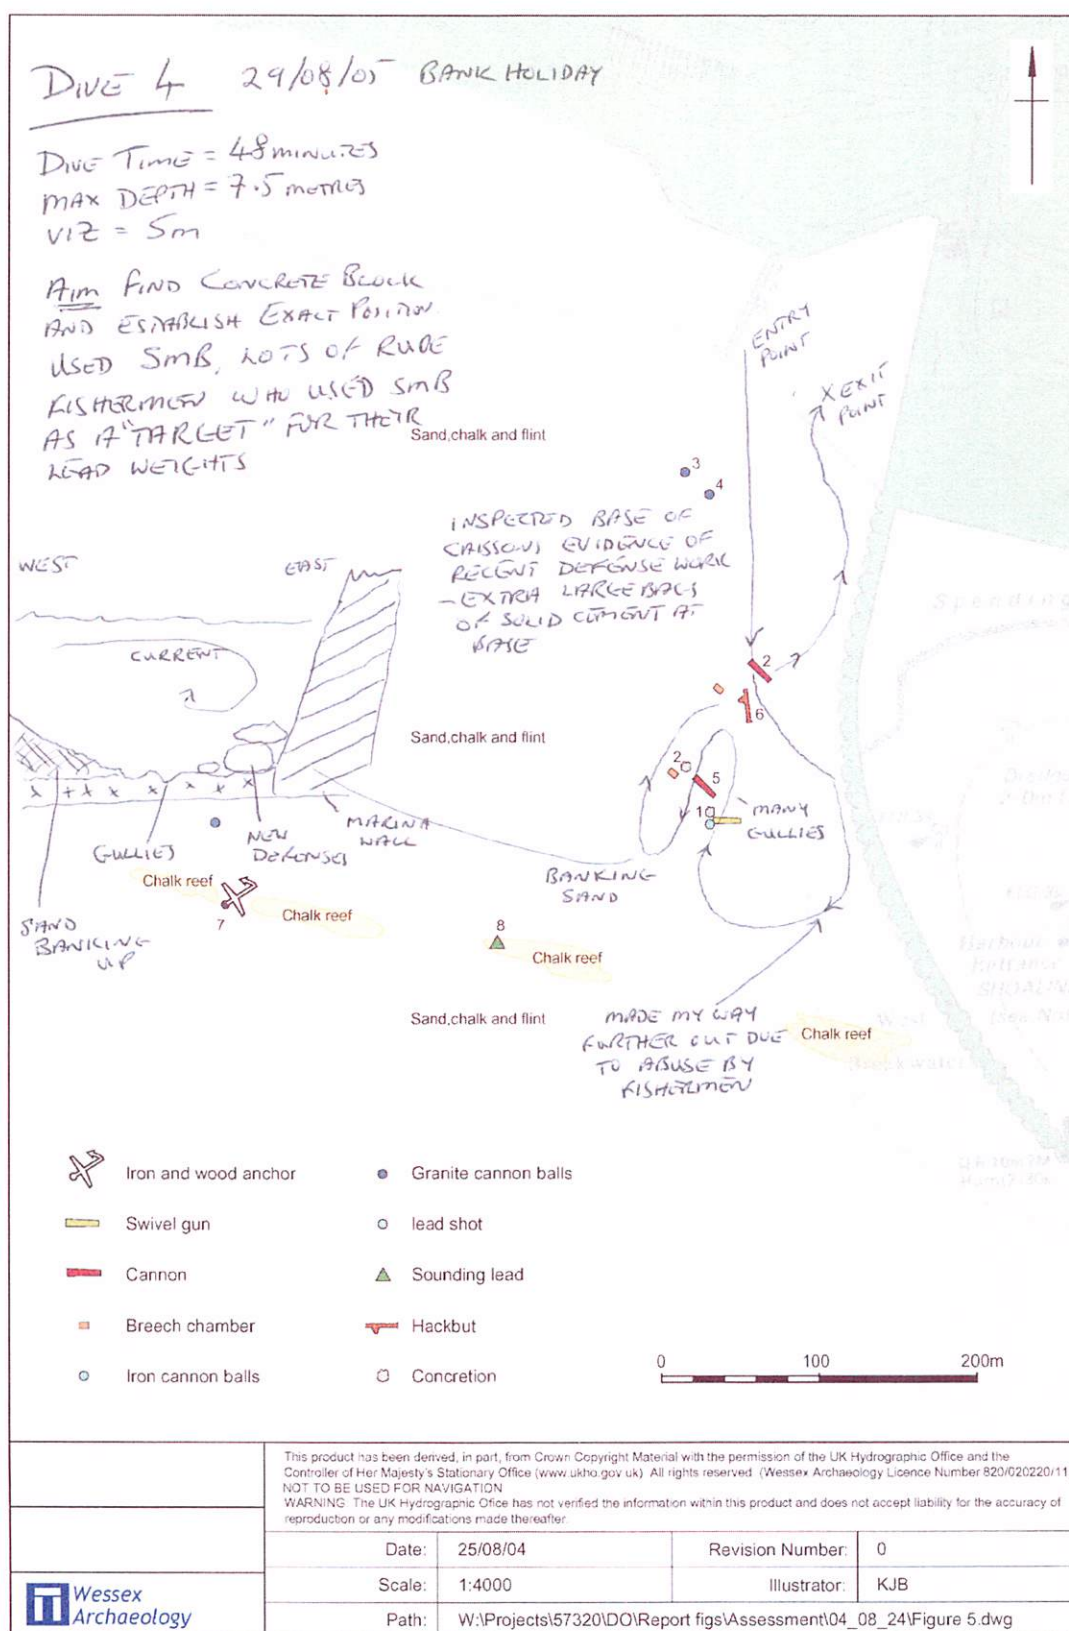 DIVE 4 29/08/05 BANK HOLIDAY
DIVE TIME = 48 MINUTES
MAX DEPTH = 7.5 METRES
VIZ = 5m
AIM FIND CONCRETE BLOCK
AND ESTABLISH EXACT POSITION.
USED SMB, LOTS OF RUDE
FISHERMEN WHO USED SMB
AS A "TARGET" FOR THEIR
LEAD WEIGHTS
Sand,chalk and flint
ENTRY
POINT
X EXIT
POINT
3
4
INSPECTED BASE OF
CAISSONS EVIDENCE OF
RECENT DEFENSE WORK
- EXTRA LARGE BAGS
OF SOLID CEMENT AT
BASE
WEST
EAST
CURRENT
Spending
2
6
Sand,chalk and flint
2
5
1
MANY
GULLIES
GULLIES
NEW
DEFENSES
MARINA
WALL
BANKING
SAND
Chalk reef
7
Chalk reef
SAND
BANKING
UP
8
Chalk reef
Harbour
Entrance
SHOALIN
(see No
West
Breakwater
Sand,chalk and flint
MADE MY WAY
FURTHER OUT DUE
TO ABUSE BY
FISHERMEN
Chalk reef
Iron and wood anchor
Granite cannon balls
Swivel gun
lead shot
Cannon
Sounding lead
Breech chamber
Hackbut
Iron cannon balls
Concretion
0 100 200m
This product has been derived, in part, from Crown Copyright Material with the permission of the UK Hydrographic Office and the
Controller of Her Majesty's Stationary Office (www.ukho.gov uk) All rights reserved (Wessex Archaeology Licence Number 820/020220/11
NOT TO BE USED FOR NAVIGATION
WARNING: The UK Hydrographic Ofice has not verified the information within this product and does not accept liability for the accuracy of
reproduction or any modifications made thereafter.
Date: 25/08/04 Revision Number: 0
Scale: 1:4000 Illustrator: KJB
Wessex
Archaeology
Path: W:\Projects\57320\DO\Report figs\Assessment\04_08_24\Figure 5.dwg